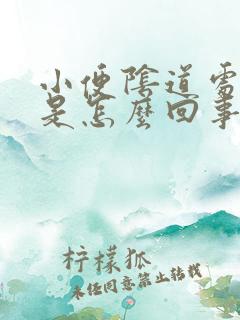 小便陰道雷
是怎麼回事
柠檬狐
未经同意禁止转载